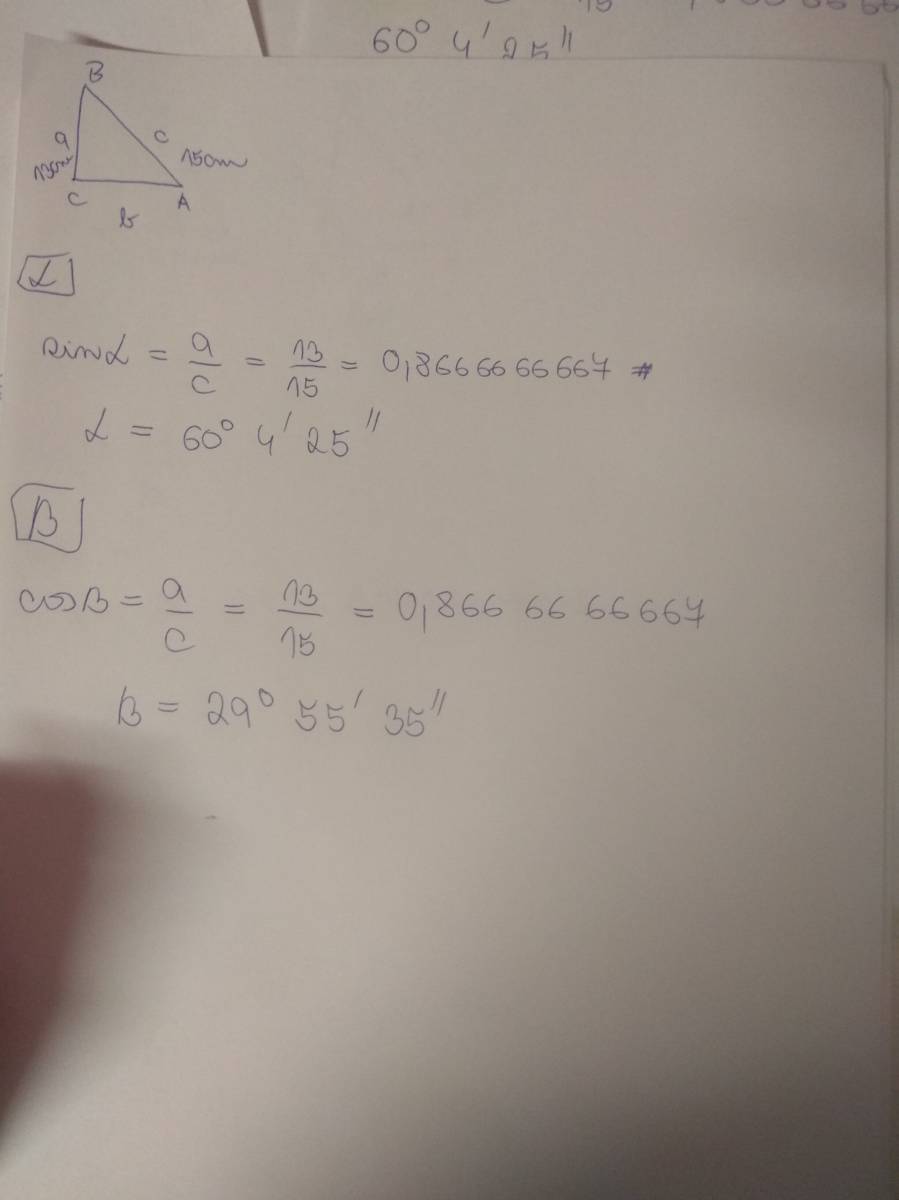 15
60° 4' 25"
B
a
c
13cm
15cm
C
A
b
α
sinα = a/c = 13/15 = 0,8666666667
α = 60° 4' 25"
β
cosβ = a/c = 13/15 = 0,8666666667
β = 29° 55' 35"